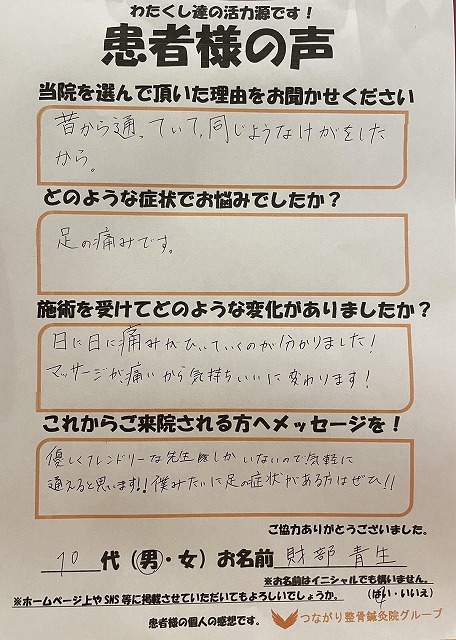 わたくし達の活力源です！
患者様の声
当院を選んで頂いた理由をお聞かせください
昔から通っていて、同じようなけがをした
から。
どのような症状でお悩みでしたか？
足の痛みです。
施術を受けてどのような変化がありましたか？
日に日に痛みがひいていくのが分かりました！
マッサージが痛いから気持ちいいに変わります！
これからご来院される方へメッセージを！
優しくフレンドリーな先生しかいないので気軽に
通えると思います!!僕みたいに足の症状がある方はぜひ!!
ご協力ありがとうございました。
10代（男・女）お名前 財部 青生
※お名前はイニシャルでも構いません。
※ホームページ上やSNS等に掲載させていただいてもよろしいでしょうか。（はい・いいえ）
患者様の個人の感想です。 つながり整骨鍼灸院グループ